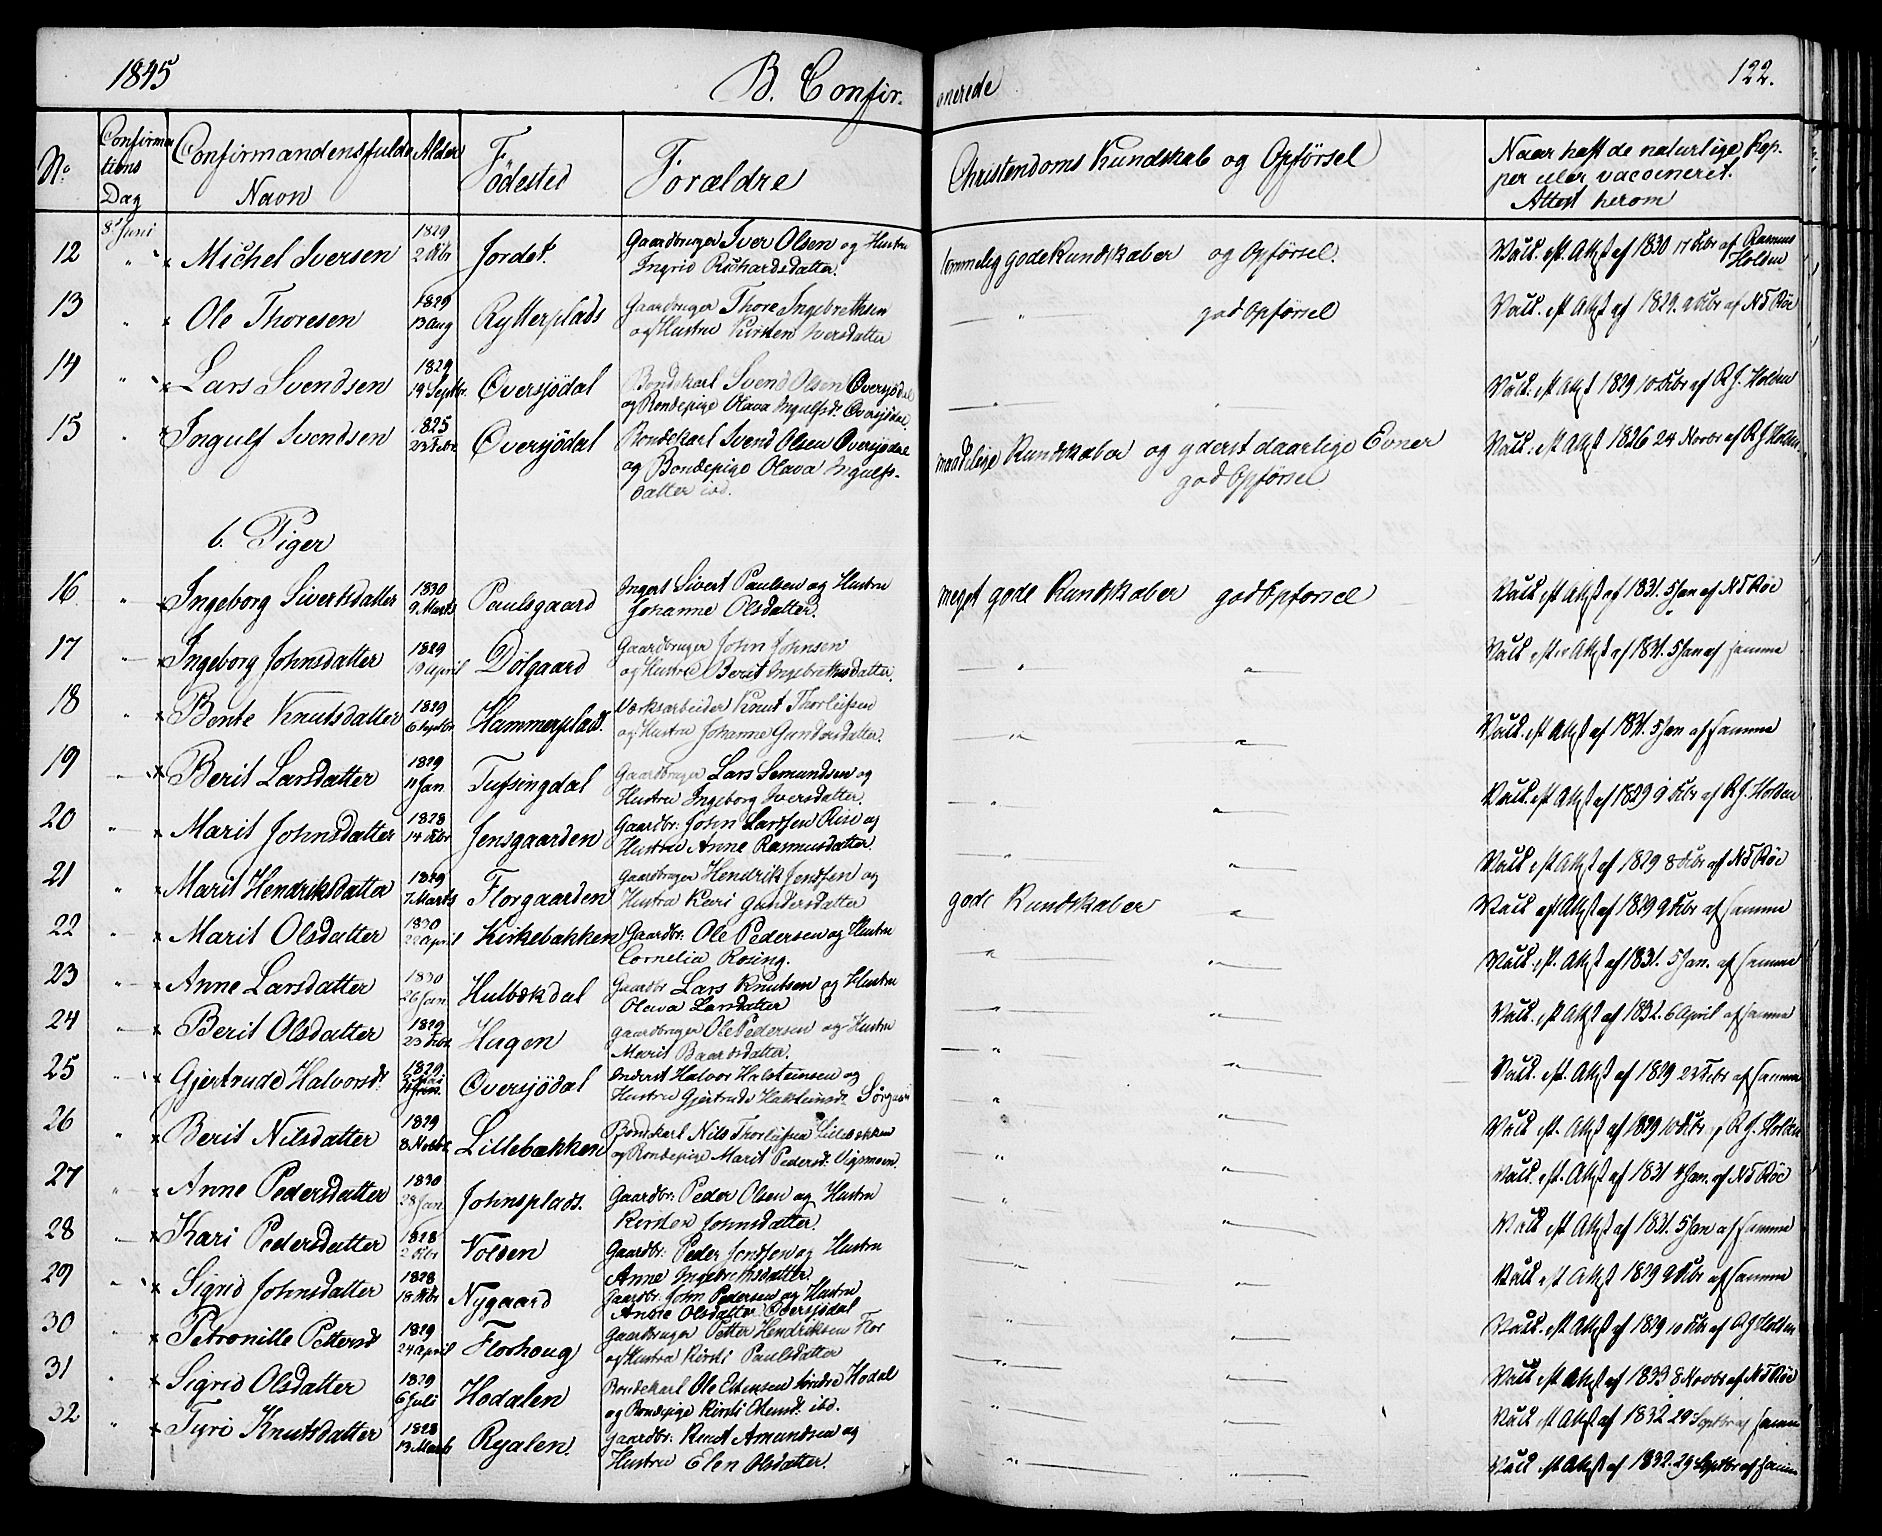 1845 B. Confir- merede 122.
No. Confirmations Dag Confirmandens fulde Navn Alder Födested Forældre Christendoms Kundskab og Opførsel Naar haft de naturlige Kopper eller vaccineret. Attest herom
8de Juni
12 " Michel Iversen 1829 2 Dcbr Jordet. Gaardbruger Iver Olsen og Hustru temmelig gode Kundskaber og Opførsel. Vacc. est. Attest af 1830 17 Dcbr af Rasmus Holden
Ingrid Richardsdatter.
13 " Ole Thoresen 1829 13 Aug Rytterplads Gaardbruger Thore Ingebrethsen — " — god Opførsel Vacc. est Attest af 1829. 9 Dcbr af N T Röe
og Hustru Kirsten Iversdatter
14 " Lars Svendsen 1829 19 Septbr. Øversjödal Bondekarl Svend Olsen Øversjödal — " — " Vacc. est Attest 1829 10 Dcbr af R J. Holden
og Bondepige Olava Ingulfsd. Øversjödal
15 " Ingulf Svendsen 1825 23 Febr Øversjödal Bondekarl Svend Olsen Øversjödal maadelige Kundskaber og yderst daarlige Evner Vacc. est Attest 1826 24 Novbr af R J Holden
og Bondepige Olava Ingulfs- god Opførsel
datter ibd.
b. Piger
16 " Ingeborg Sivertsdatter 1830 9. Marts Paulsgaard Sivert Paulsen og Hustru meget gode Kundskaber god Opførsel Vacc est Attest af 1831. 5 Jan af N T Röe
Johanne Olsdatter.
17 " Ingeborg Johnsdatter 1829 19 April Dölgaard Gaardbruger John Johnsen — " — " — Vacc est Attest af 1831. 5 Jan af samme
og Hustru Berit Ingebrethsdatter.
18 " Bente Knutsdatter 1829 6 Septbr Hammerplads. Værksarbeider Knut Thorleifsen — " — " — Vacc. est Attest af 1831. 5 Jan af samme
og Hustru Johanne Gundersdatter.
19 " Berit Larsdatter 1829 11 Jan Tufsingdal Gaardbruger Lars Semundsen og — " — " — Vacc. est Attest af 1829 9 Dcbr af R J. Holden
Hustru Ingeborg Iversdatter.
20 " Marit Johnsdatter 1828 14 Dcbr Jensgaarden Gaardbr: John Larssen Rise og — " — " — Vacc est Attest af 1829 8 Dcbr af N T Röe
Hustru Anne Rasmusdatter.
21 " Marit Hendriksdatter 1829 7 Marts Florgaarden Gaardbruger Hendrik Jensen og gode Kundskaber " — Vacc est Attest af 1829 9 Dcbr af samme
Hustru Kari Gundersdatter
22 " Marit Olsdatter 1830 22 April Kirkebakken Gaardbr: Ole Pedersen og Hustru — " — " — Vacc. est. Attest af 1831. 5 Jan. af samme
Cornelia Rosing.
23 " Anne Larsdatter 1830 26 Jan Hulbækdal Gaardbr Lars Knutsen og Hustru — " — " — Vacc. est Attest af 1832. 6 April af samme
Olava Larsdatter
24 " Berit Olsdatter 1829 Haugen Gaardbruger Ole Pedersen og Hustru — " — " — Vacc. est. Attest af 1829 af samme
Marit Baardsdatter.
25 " Gjertrude Halvorsd. 1829 Øversjödal Inderst Halvor Holsteinsen og — " — " — Vacc. est. Attest af 1829 10 Dcbr af R J. Holden
Hustru Gjertrude Halsteinsd.
26 " Berit Nilsdatter 1829 8 Novbr. Lillebakken Bondekarl Nils Thorleifsen Lillebakken — " — " — Vacc. est. Attest af 1831 4 Jan. af N T Röe
og Bondepige Marit Pedersd. Vigmoen.
27 " Anne Pedersdatter 1830 28 Jan Johnsplads. Gaardbr: Peder Olsen og Hustru — " — " — Vacc est Attest af 1831. 5 Jan af samme
Kirsten Johnsdatter.
28 " Kari Pedersdatter 1828 2 Dcbr Volden Gaardbr: Peder Jensen og Hustru — " — " — Vacc est Attest af 1829 9 Dcbr af samme
Anne Ingebrethsdatter.
29 " Sigrid Johnsdatter 1828 18 Dcbr Nygaard Gaardbr: John Pedersen og Hustru — " — " — Vacc. est. Attest af 1829 10 Dcbr af R J Holden
Anne Olsdatter. Øversjödal
30 " Petronille Pettersd 1829 24 April Florhoug Gaardbruger Petter Hendriksen Flor — " — " — Vacc est Attest af 1833 8 Novbr af N T Röe
og Hustru Kirsti Paulsdatter
31 " Sigrid Olsdatter 1829 6 Juli Hodalen Bondekarl Ole Estensen Søndre Hodal — " — " — Vacc est Attest af 1832 29 Septbr af samme
og Bondepige Kirsti Olsensd. ibd.
32 " Tyri Knutsdatter 1828 13 Marts Ryalen. Gaardbr: Knut Amundsen og — " — " — Vacc est Attest af 1832. 29 Septbr af samme
Hustru Elen Olsdatter.